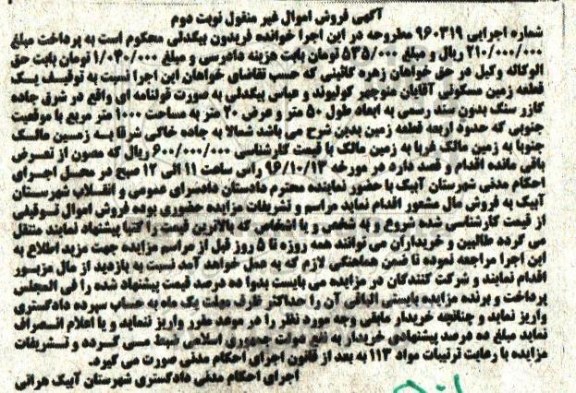 آگهی فروش اموال غیر منقول نوبت دوم
شماره اجرایی ۹۶۰۳۱۹ مطروحه در این اجرا خوانده فریدون بیگدلی محکوم است به پرداخت مبلغ
۲۱۰/۰۰۰/۰۰۰ ریال و مبلغ ۵۳۵/۰۰۰ تومان بابت هزینه دادرسی و مبلغ ۱/۰۴۰/۰۰۰ تومان بابت حق
الوکاله وکیل در حق خواهان زهره کائینی که حسب تقاضای خواهان این اجرا نسبت به توقیف یک
قطعه زمین مسکونی آقایان منوچهر کولیوند و عباس بیگدلی به صورت قولنامه ای واقع در شرق جاده
کازر سنگ بدون سند رسمی به ابعاد طول ۵۰ متر و عرض ۲۰ متر به مساحت ۱۰۰۰ متر مربع با موقعیت
جنوبی که حدود اربعه قطعه زمین بدین شرح می باشد شمالا به جاده خاکی شرقا به زمین مالک
جنوبا به زمین مالک غربا به زمین مالک با قیمت کارشناسی ۶۰۰/۰۰۰/۰۰۰ ریال که مصون از تعرض
باقی مانده اقدام و قصد دارد در مورخه ۹۶/۱۰/۱۳ راس ساعت ۱۱ الی ۱۲ صبح در محل اجرای
احکام مدنی شهرستان آبیک با حضور نماینده محترم دادستان دادسرای عمومی و انقلاب شهرستان
آبیک به فروش مال مشعور اقدام نماید مراسم و تشریفات مزایده حضوری بوده فروش اموال توقیفی
از قیمت کارشناسی شده شروع و به شخص و یا اشخاص که بالاترین قیمت را کتبا پیشنهاد نمایند منتقل
می گردد طالبین و خریداران می توانند همه روزه تا ۵ روز قبل از مراسم مزایده جهت مزید اطلاع به
این اجرا مراجعه نموده تا ضمن هماهنگی لازم که به عمل خواهد آمد نسبت به بازدید از مال مزبور
اقدام نمایند و شرکت کنندگان در مزایده می بایست بدوا ده درصد قیمت پیشنهاد شده را فی المجلس
پرداخت و برنده مزایده بایستی الباقی آن را حداکثر ظرف مهلت یک ماه به حساب سپرده دادگستری
واریز نماید و چنانچه خریدار مابقی وجه مورد نظر را در موعد مقرر واریز ننماید و یا اعلام انصراف
نماید مبلغ ده درصد پیشنهادی خریدار به نفع دولت جمهوری اسلامی ضبط می گردد و تشریفات
مزایده با رعایت ترتیبات مواد ۱۱۳ به بعد از قانون اجرای احکام مدنی صورت می گیرد.
اجرای احکام مدنی دادگستری شهرستان آبیک هرانی